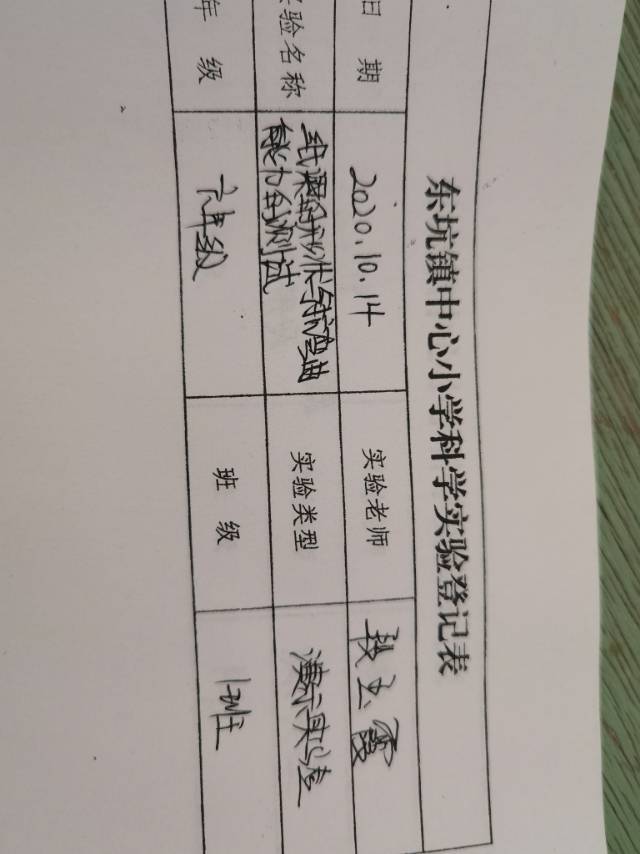 东坑镇中心小学科学实验登记表
日 期 2020.10.14 实验老师 段玉霞
实验名称 纸梁的形状与抗弯曲 实验类型 演示实验
能力的测试
年 级 六年级 班 级 1班